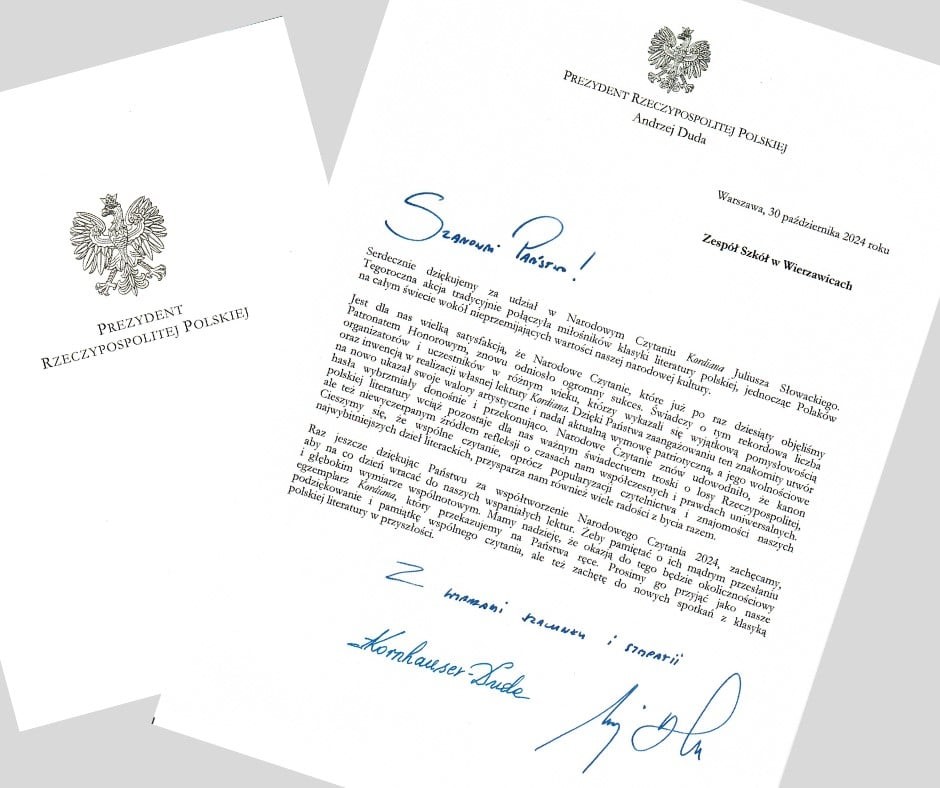 PREZYDENT
RZECZYPOSPOLITEJ POLSKIEJ
PREZYDENT RZECZYPOSPOLITEJ POLSKIEJ
Andrzej Duda
Warszawa, 30 października 2024 roku
Zespół Szkół w Wierzawicach
Szanowni Państwo!
Serdecznie dziękujemy za udział w Narodowym Czytaniu Kordiana Juliusza Słowackiego.
Tegoroczna akcja tradycyjnie połączyła miłośników klasyki literatury polskiej, jednocząc Polaków
na całym świecie wokół nieprzemijających wartości naszej narodowej kultury.
Jest dla nas wielką satysfakcją, że Narodowe Czytanie, które już po raz dziesiąty objęliśmy
Patronatem Honorowym, znowu odniosło ogromny sukces. Świadczy o tym rekordowa liczba
organizatorów i uczestników w różnym wieku, którzy wykazali się wyjątkową pomysłowością
oraz inwencją w realizacji własnej lektury Kordiana. Dzięki Państwa zaangażowaniu ten znakomity utwór
na nowo ukazał swoje walory artystyczne i nadal aktualną wymowę patriotyczną, a jego wolnościowe
hasła wybrzmiały donośnie i przekonująco. Narodowe Czytanie znów udowodniło, że kanon
polskiej literatury wciąż pozostaje dla nas ważnym świadectwem troski o losy Rzeczypospolitej,
ale też niewyczerpanym źródłem refleksji o czasach nam współczesnych i prawdach uniwersalnych.
Cieszymy się, że wspólne czytanie, oprócz popularyzacji czytelnictwa i znajomości naszych
najwybitniejszych dzieł literackich, przysparza nam również wiele radości z bycia razem.
Raz jeszcze dziękując Państwu za współtworzenie Narodowego Czytania 2024, zachęcamy,
aby na co dzień wracać do naszych wspaniałych lektur. Żeby pamiętać o ich mądrym przesłaniu
i głębokim wymiarze wspólnotowym. Mamy nadzieję, że okazją do tego będzie okolicznościowy
egzemplarz Kordiana, który przekazujemy na Państwa ręce. Prosimy go przyjąć jako nasze
podziękowanie i pamiątkę wspólnego czytania, ale też zachętę do nowych spotkań z klasyką
polskiej literatury w przyszłości.
Z wyrazami szacunku i sympatii
Kornhauser-Duda